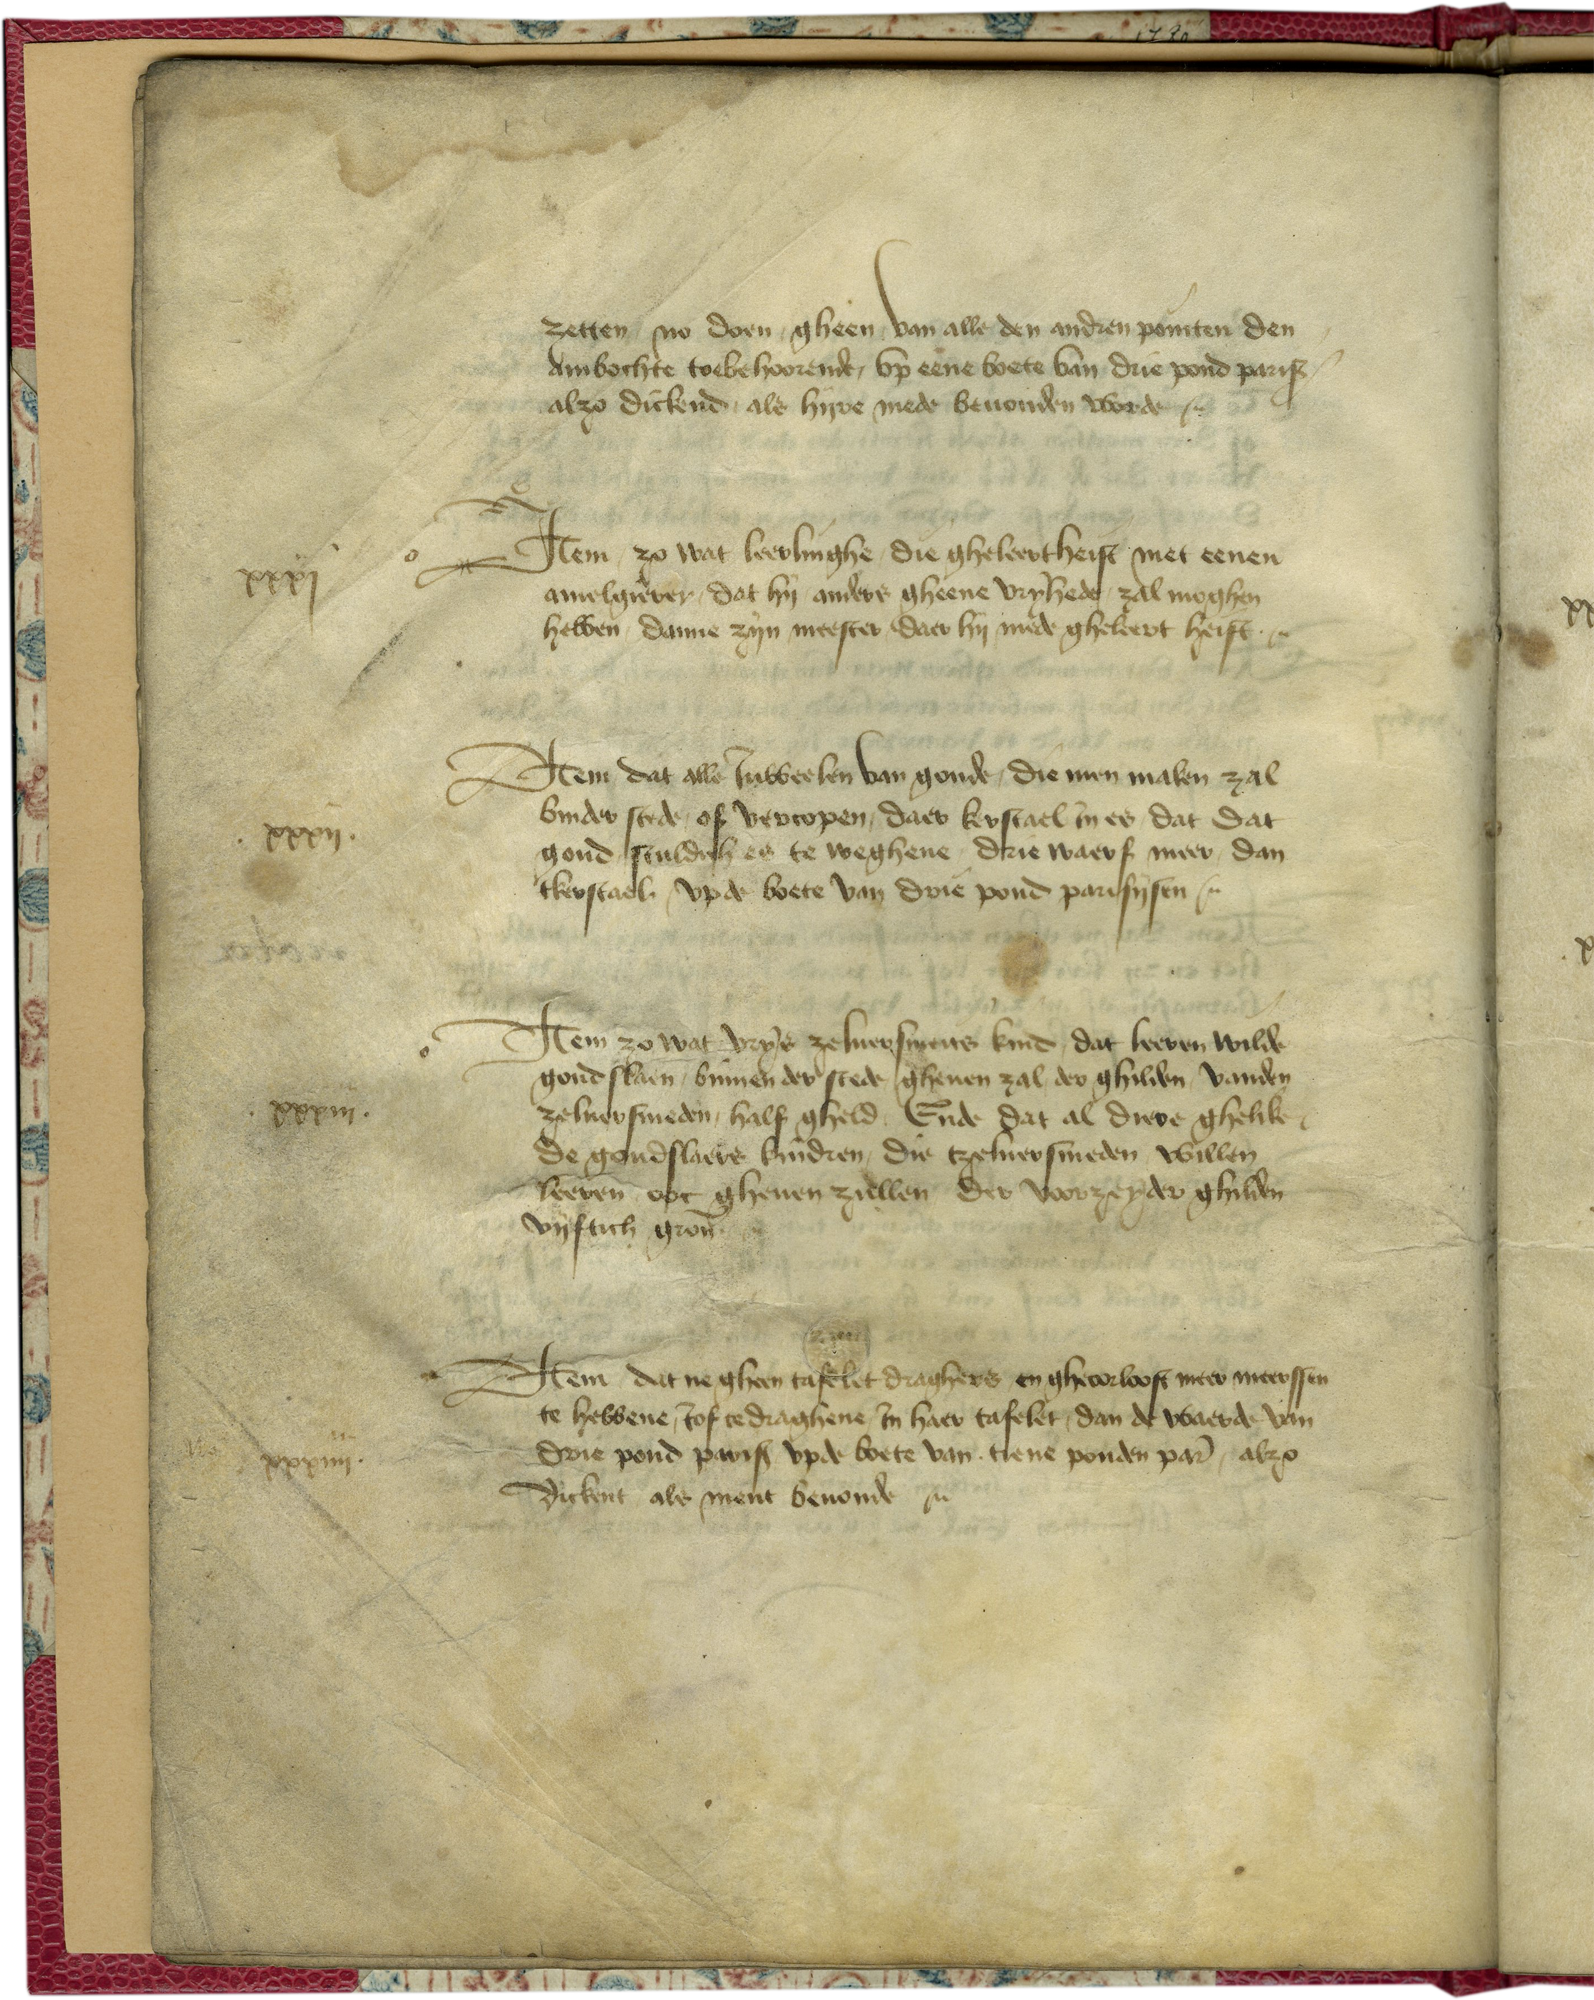 zetten no doen gheen van alle den andren pointen den
Ambochte toebehoorende, vp eene boete van drie pond paris
alzo dickend als hijre mede beuonden worde
xxxj
Item zo wat leerlinghe die gheleert heift met eenen
amelgierer dat hij anders gheene vryhede zal moghen
hebben danne zijn meester daer hij mede gheleert heift
xxxij.
Item dat alle Juweelen van goude die men maken zal
binder stede of vercopen daer kerstael in es dat dat
goud sculdich es te weghene drie waerf meer dan
tkerstael vp de boete van drie pond parisysen
xxxiij.
Item zo wat vrijs zeluersmets kind dat leeren wilde
goudslaen binnen der stede gheuen zal der ghilden vanden
zeluersmeden half gheld Ende dat al diere ghelike
de goudslaers kindren die tzeluersmeden willen
leeren ooc gheuen zullen der voorzeyder ghilden
vijftich gron
xxxiiij.
Item dat ne gheen tafelet draghers en gheoorlooft meer meerssen
te hebbene, Jof te draghene In haer tafelet dan de waerde van
drie pond paris vp de boete van tiene ponden par alzo
dickent als ment beuonde